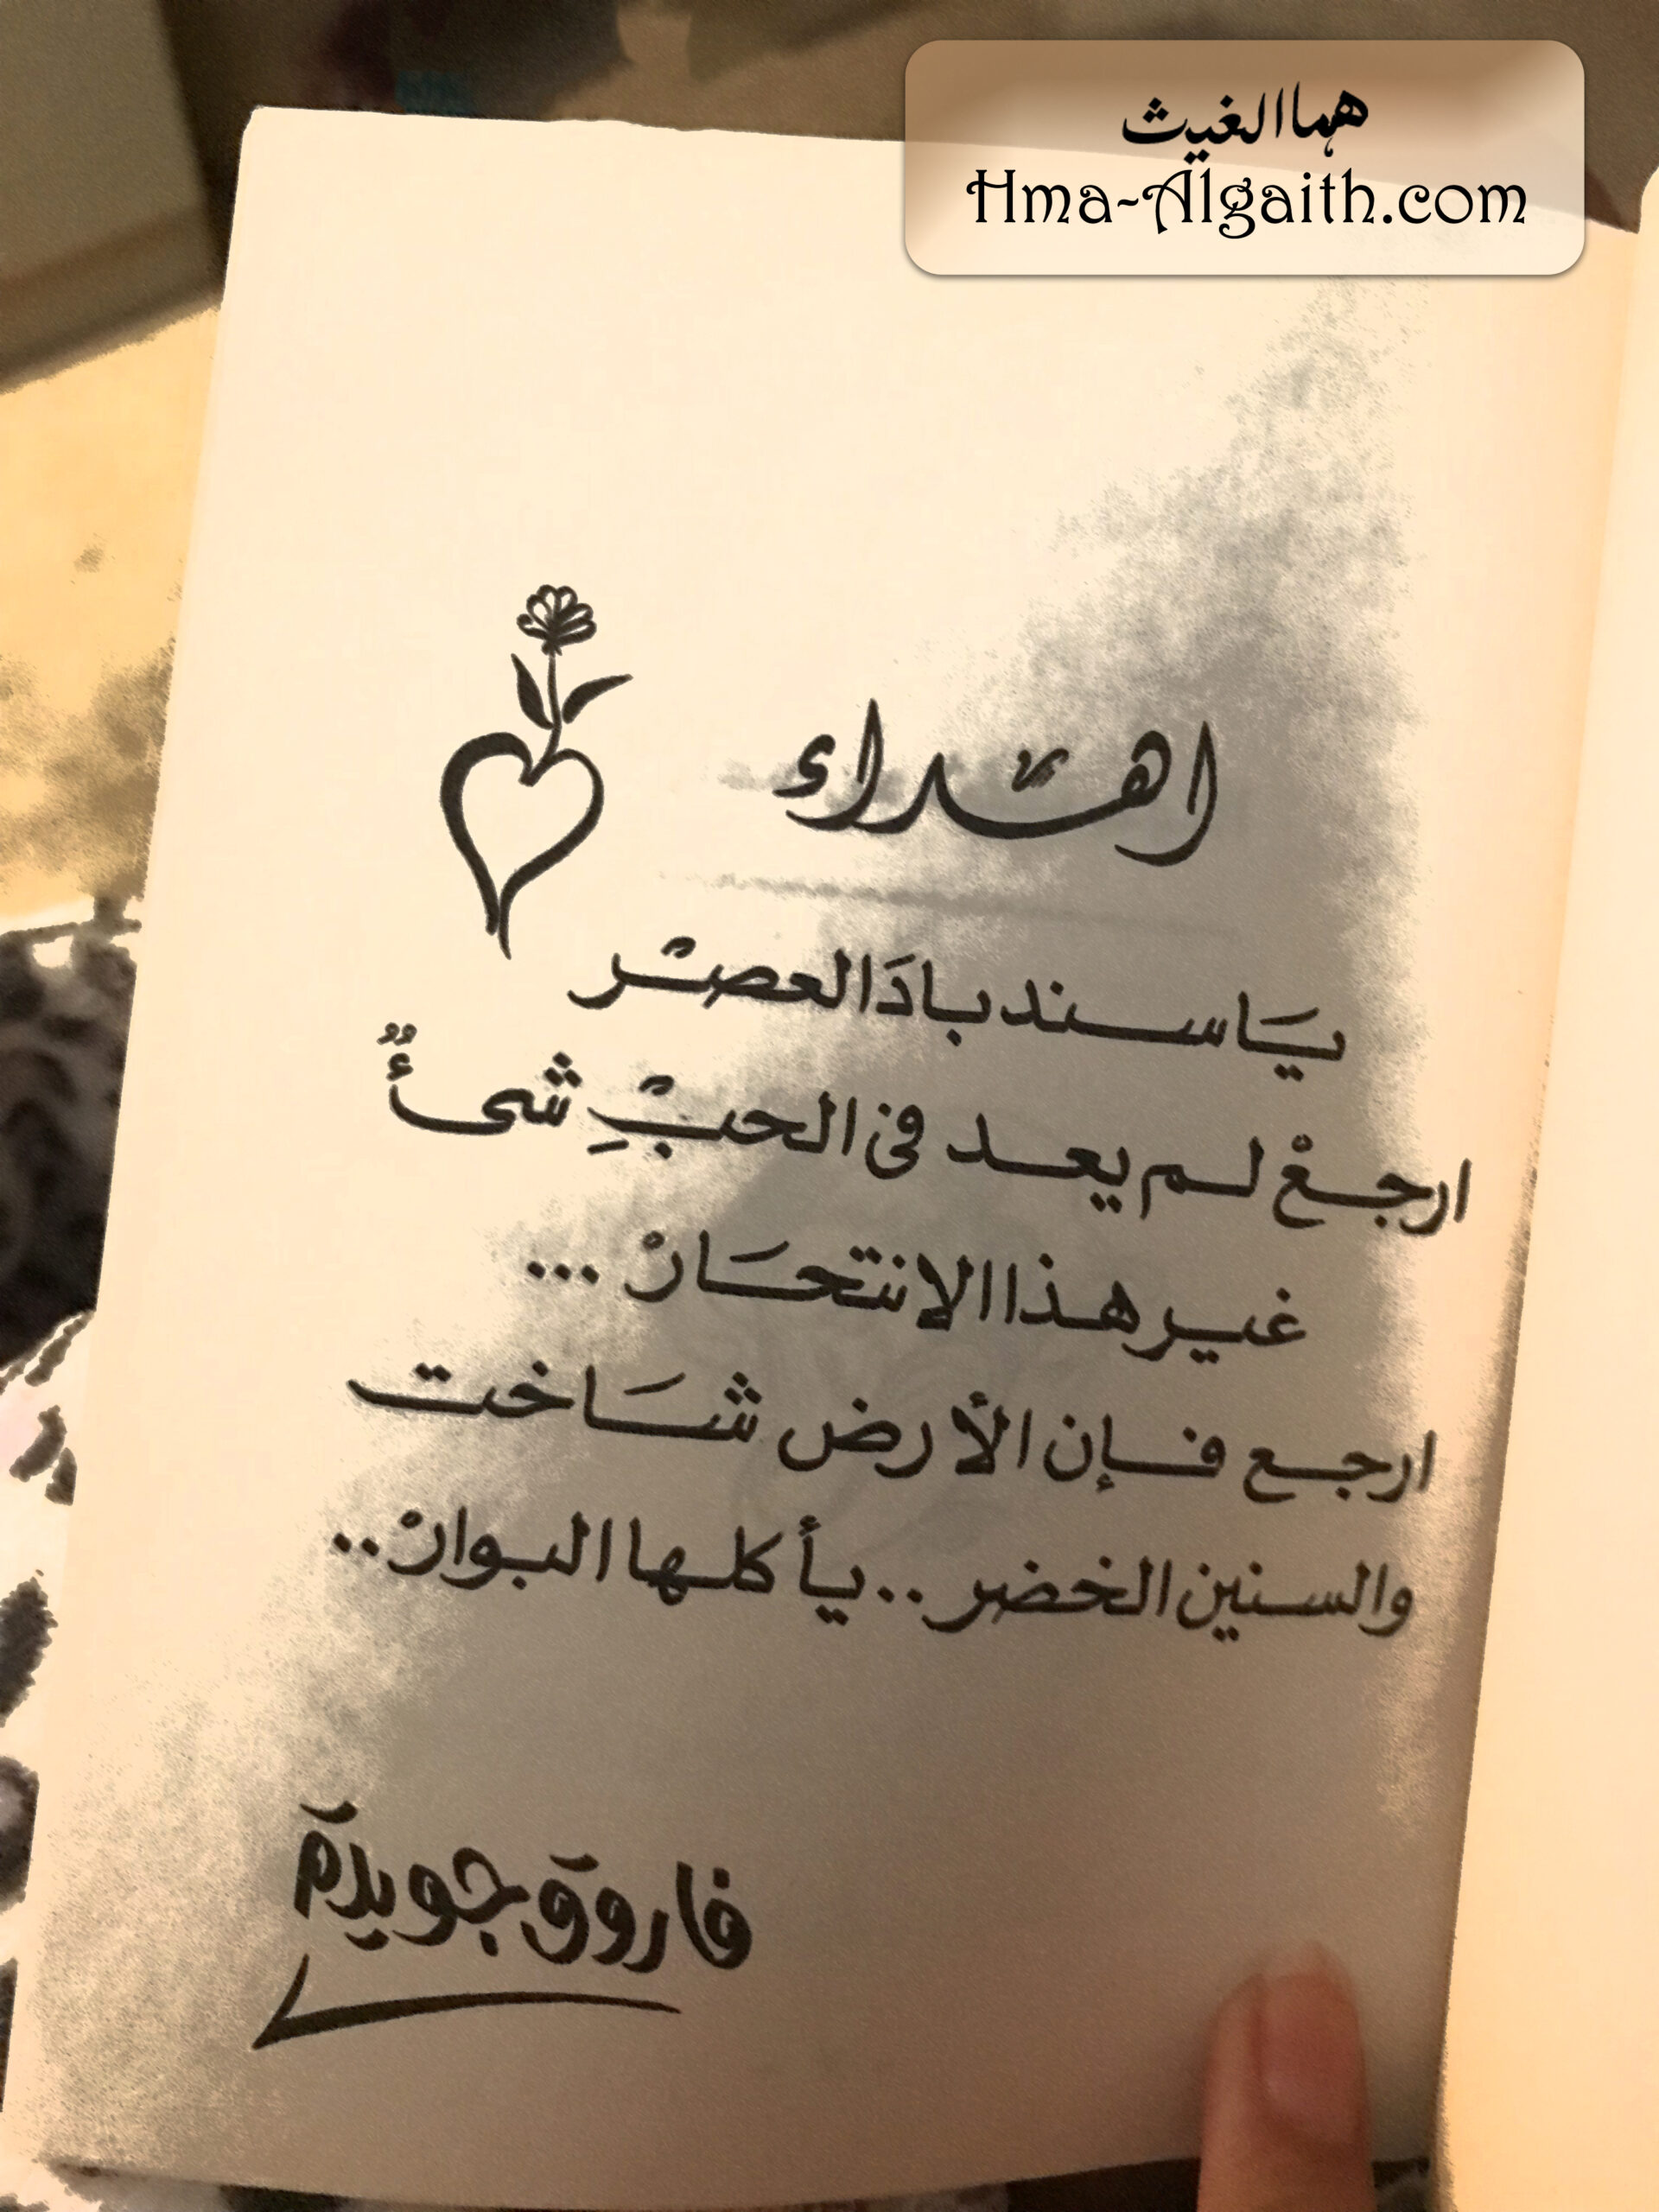 هما الغيث
Hma-Algaith.com
اهداء
يَا سندبادَ العصرْ
ارجعْ لم يعد فى الحبْ شىءٌ
غير هذا الانتحَارْ ...
ارجع فإن الأرض شَاخت
والسنين الخضر .. يأكلها البوارْ ..
فاروق جويدة